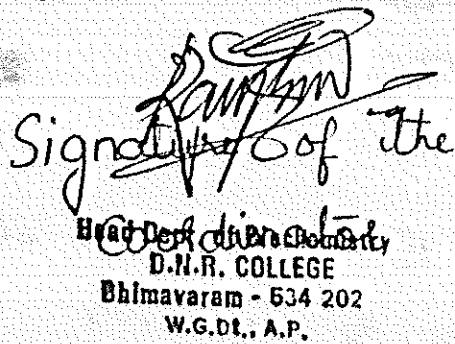 Signature of the
Coordinator
Head Dept. of
D.N.R. COLLEGE
Bhimavaram - 534 202
W.G.Dt., A.P.